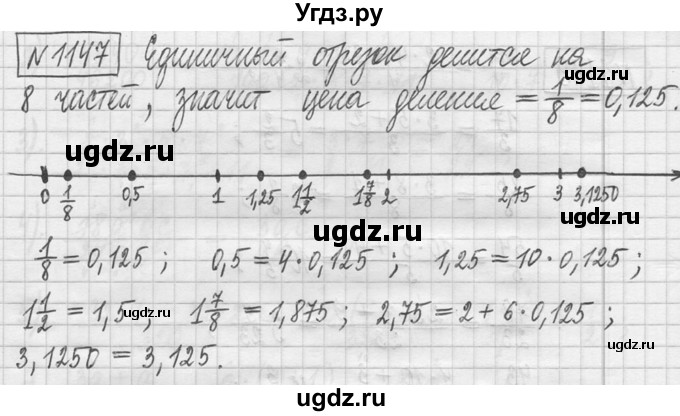 Угдз.ру
№1147 Единичный отрезок делится на
8 частей, значит цена деления = 1/8 = 0,125.
ugdz.ru
ugdz.ru
ugdz.ru
ugdz.ru ugdz.ru
0 1/8 0,5 1 1,25 1 1/2 1 7/8 2 2,75 3 3,1250
ugdz.ru
1/8 = 0,125 ; 0,5 = 4 · 0,125 ; 1,25 = 10 · 0,125 ;
ugdz.ru ugdz.ru
1 1/2 = 1,5 ; 1 7/8 = 1,875 ; 2,75 = 2 + 6 · 0,125 ;
ugdz.ru
3,1250 = 3,125.
ugdz.ru
ugdz.ru